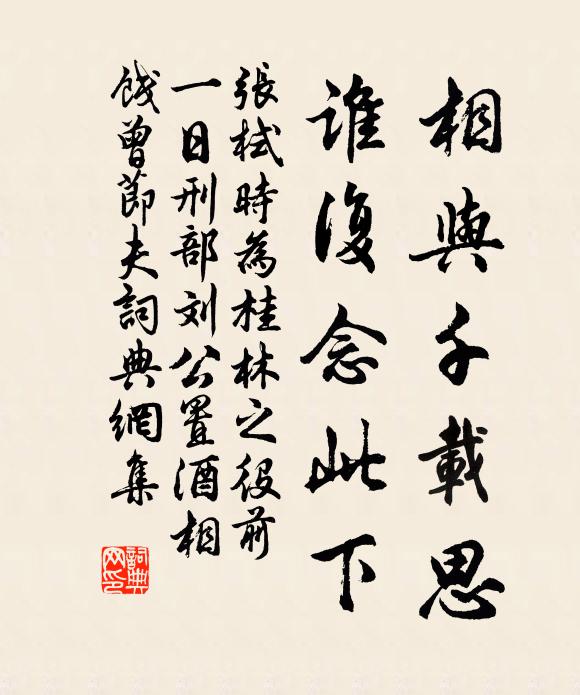 相與千載思
誰復念此下
張栻時為桂林之役前
一日刑部刘公置酒相
餞曾節夫詞典網集
詞典
网印